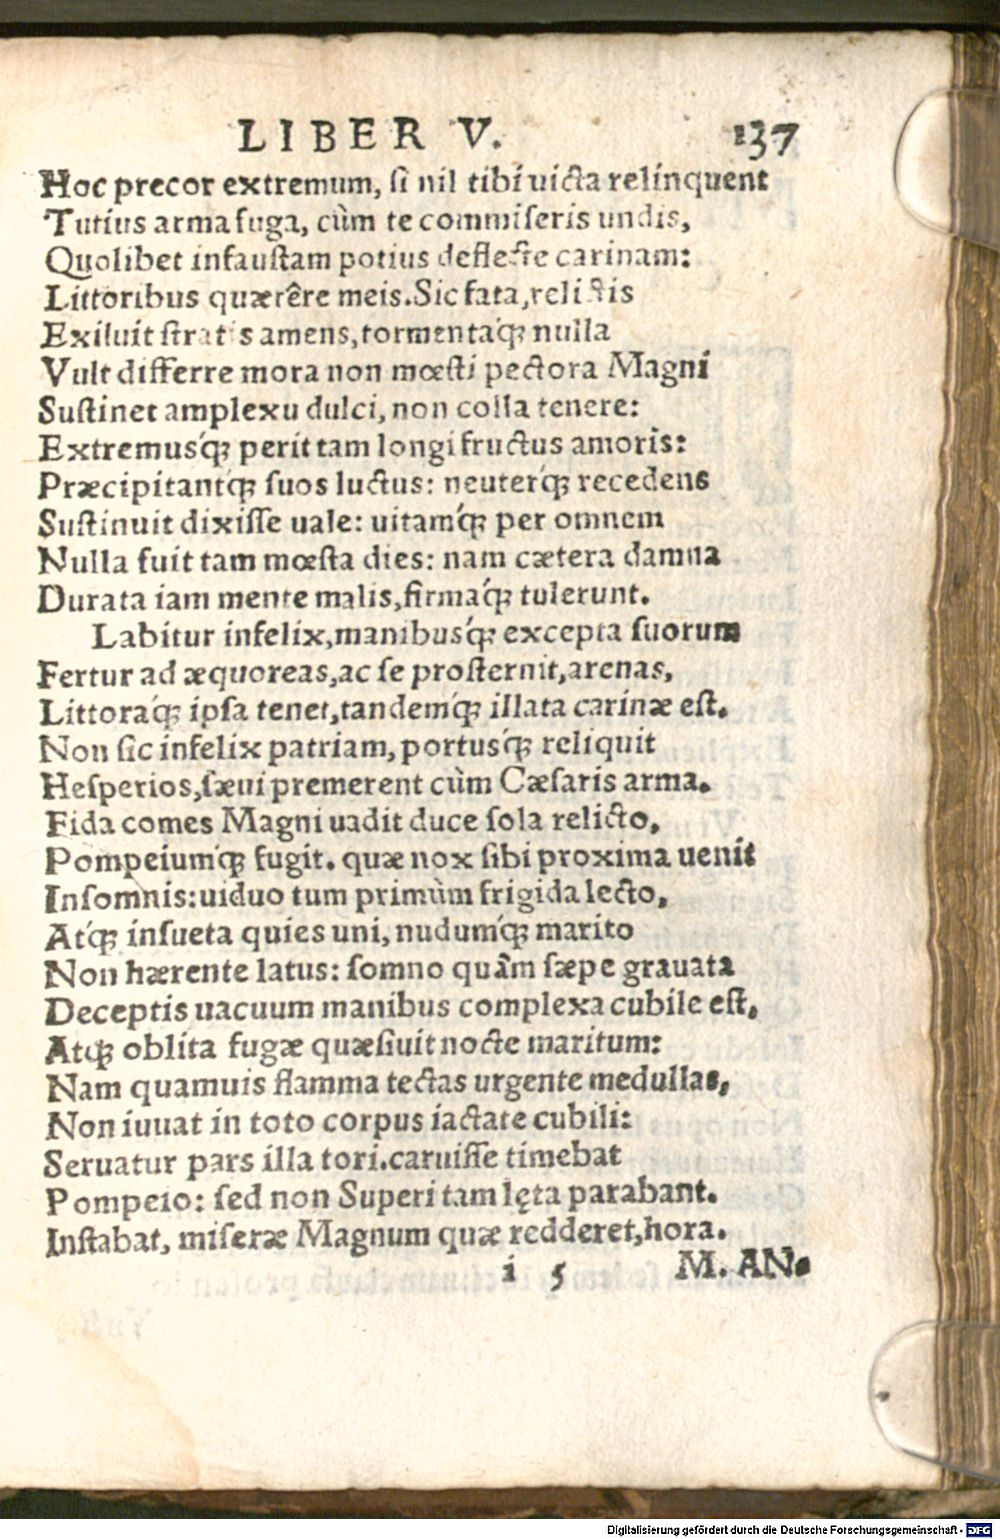 LIBER V. 137
Hoc precor extremum, ſi nil tibi uicta relinquent
Tutius arma fuga, cùm te commiſeris undis,
Quolibet infauſtam potius deflecte carinam:
Littoribus quærêre meis. Sic fata, relictis
Exiluit ſtratis amens, tormentáq́ꝫ nulla
Vult differre mora non mœſti pectora Magni
Suſtinet amplexu dulci, non colla tenere:
Extremusq́ꝫ perit tam longi fructus amoris:
Præcipitantq́ꝫ ſuos luctus: neuterq́ꝫ recedens
Suſtinuit dixiſſe uale: uitamq́ꝫ per omnem
Nulla fuit tam mœſta dies: nam cætera damna
Durata iam mente malis, firmaq́ꝫ tulerunt.
Labitur infelix, manibusq́ꝫ excepta ſuorum
Fertur ad æquoreas, ac ſe proſternit, arenas,
Littoraq́ꝫ ipſa tenet, tandemq́ꝫ illata carinæ eſt.
Non ſic infelix patriam, portusq́ꝫ reliquit
Heſperios, ſæui premerent cùm Cæſaris arma.
Fida comes Magni uadit duce ſola relicto,
Pompeiumq́ꝫ fugit. quæ nox ſibi proxima uenit
Inſomnis: uiduo tum primùm frigida lecto,
Atq́ꝫ inſueta quies uni, nudumq́ꝫ marito
Non hærente latus: ſomno quàm ſæpe grauata
Deceptis uacuum manibus complexa cubile eſt,
Atqꝫ oblita fugæ quæſiuit nocte maritum:
Nam quamuis flamma tectas urgente medullas,
Non iuuat in toto corpus iactate cubili:
Seruatur pars illa tori. caruiſſe timebat
Pompeio: ſed non Superi tam lęta parabant.
Inſtabat, miſeræ Magnum quæ redderet, hora.
i 5 M. AN.
Digitalisierung gefördert durch die Deutsche Forschungsgemeinschaft - DFG